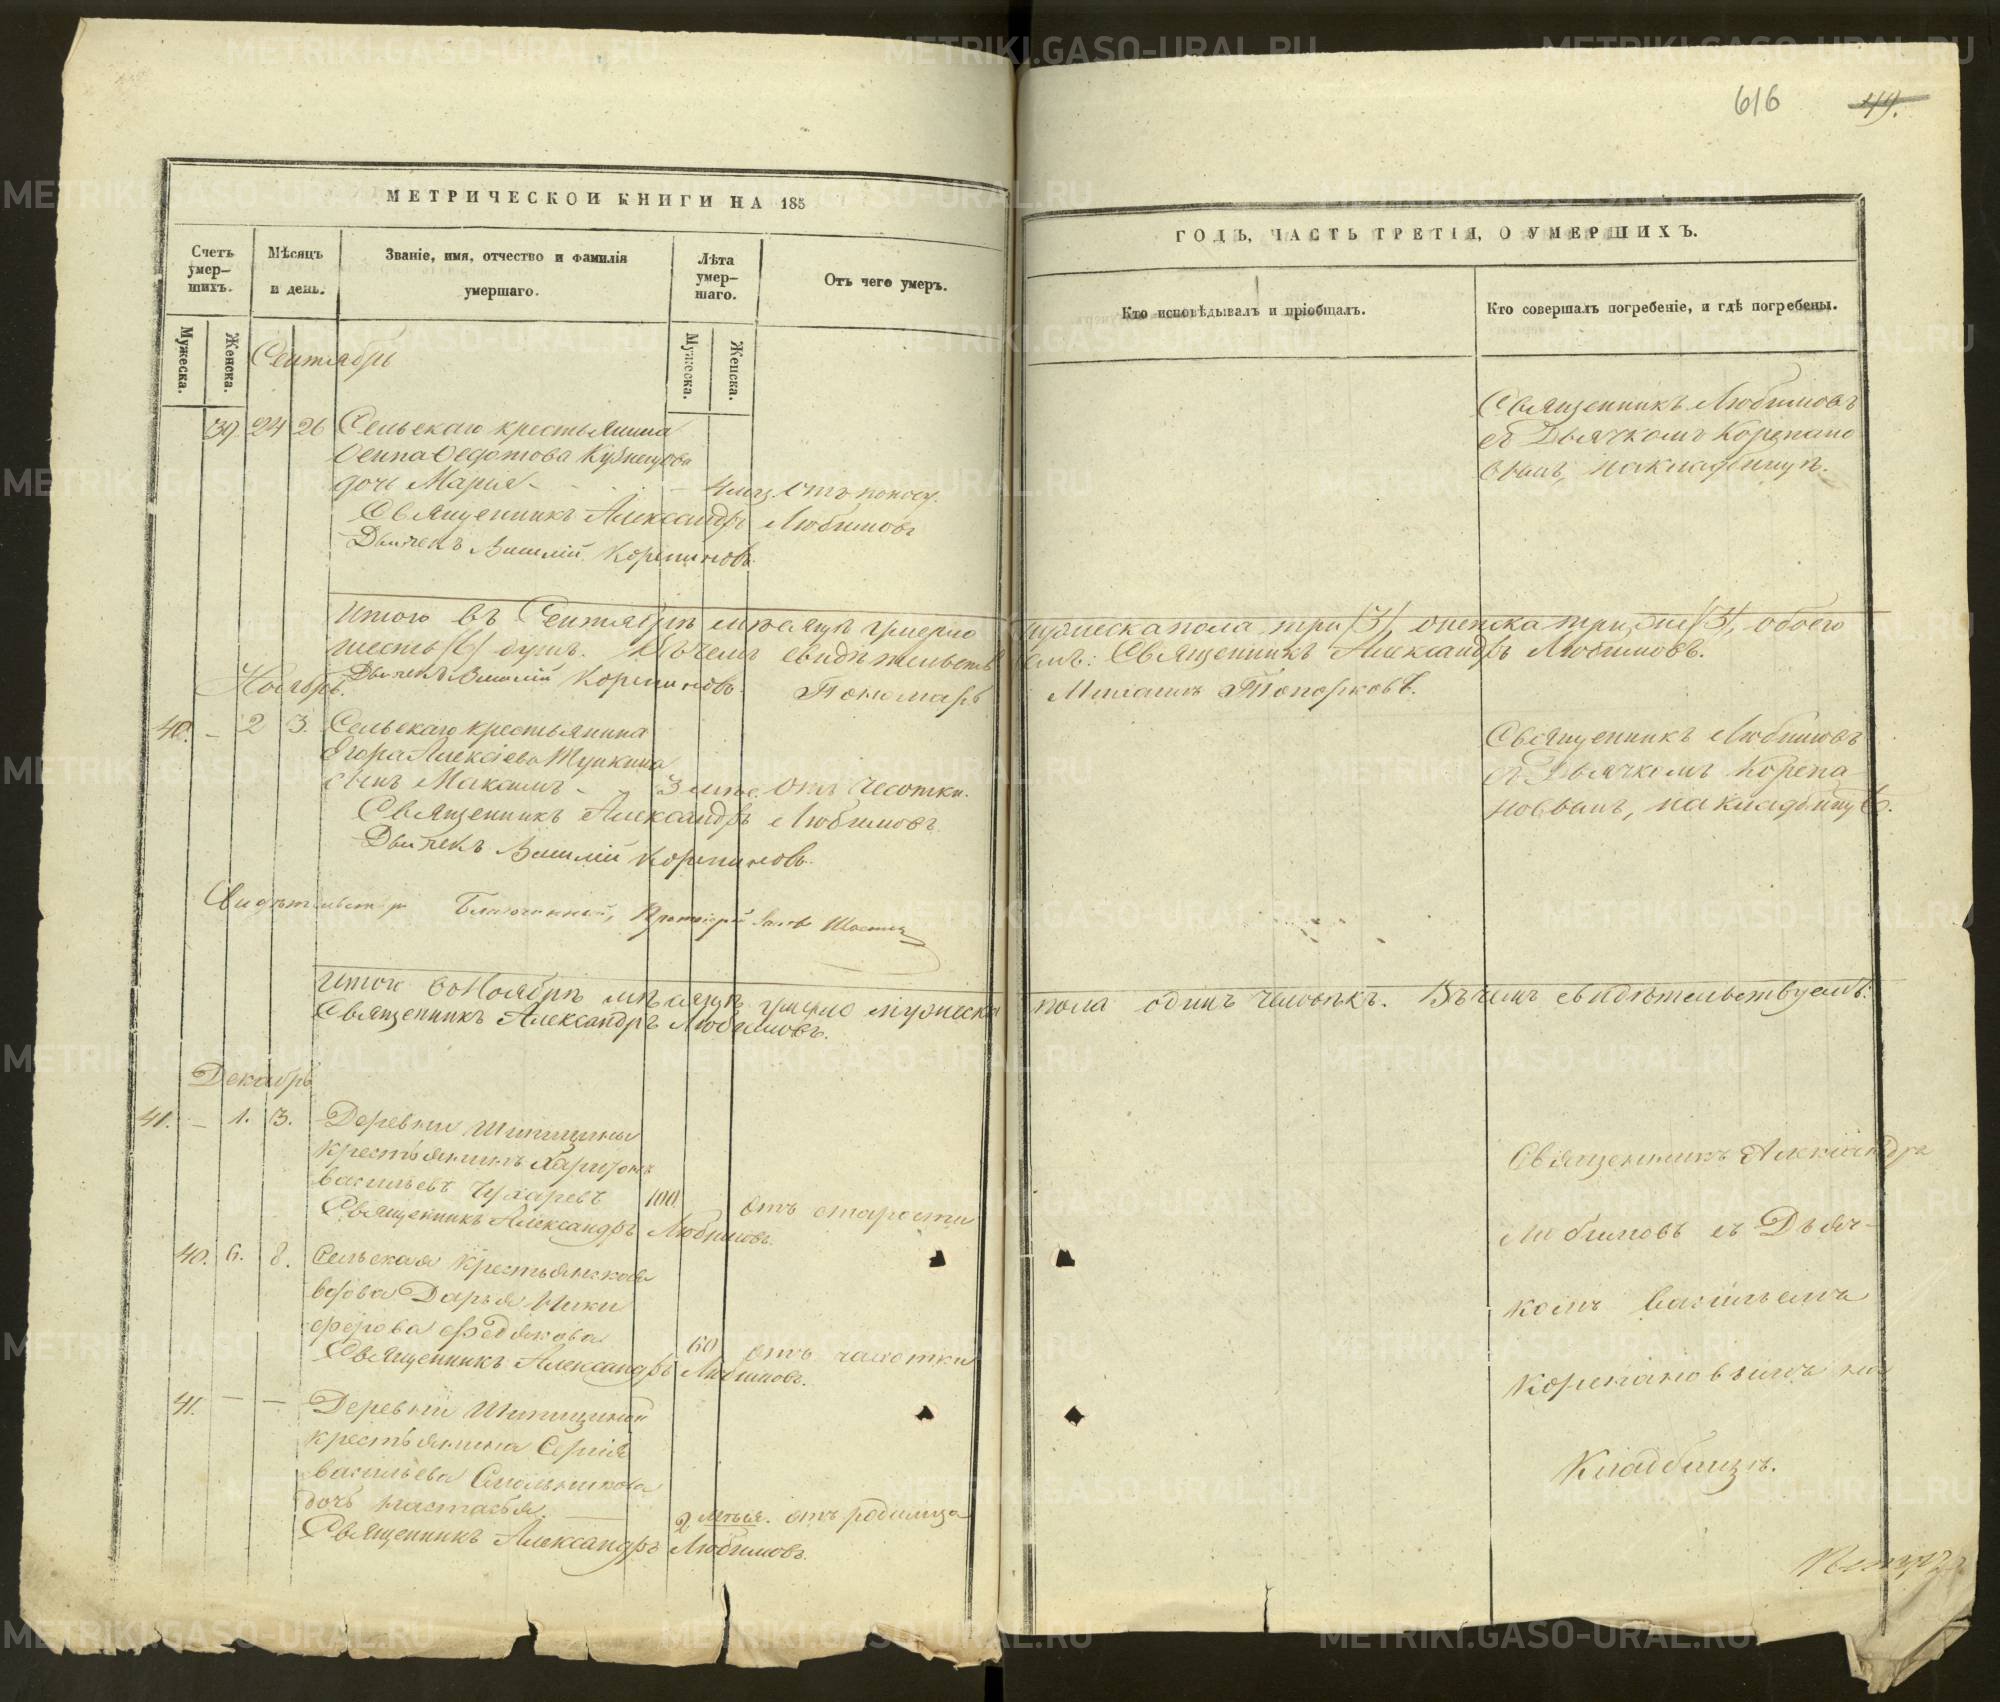 616 49.
МЕТРИЧЕСКОЙ КНИГИ НА 185
Счетъ умер-
шихъ.
Мѣсяцъ
и день.
Званіе, имя, отчество и фамилія
умершаго.
Лѣта
умер-
шаго.
Отъ чего умеръ.
Мужеска.
Женска.
Мужеска.
Женска.
Сентябрь
39. 24 26 Сельскаго крестьянина
Осипа Федотова Кузнецова
дочь Марія - 4 мѣс. Отъ поносу.
Священникъ Александръ Любимовъ
Дьячекъ Василій Корепановъ.
Итого въ Сентябрѣ мѣсяцѣ умерло
шесть (6) душъ. Въ чемъ свидѣтельству
Дьячекъ Василій Корепановъ. Пономарь
Ноябрь.
40. - 2 3. Сельскаго крестьянина
Егора Алексіева
сынъ Максимъ - 3 мѣс. Отъ чесотки.
Священникъ Александръ Любимовъ.
Дьячекъ Василій Корепановъ.
Свидѣтельствую Благочинный, Протоіерей
Итого въ Ноябрѣ мѣсяцѣ умерло мужеска
Священникъ Александръ Любимовъ.
Декабрь
41. - 1. 3. Деревни Шипицины
крестьянинъ Харитонъ
Васильевъ Чухаревъ 100. отъ старости
Священникъ Александръ Любимовъ.
40. 6. 8. Сельская крестьянская
вдова Дарья Ники
форова Федякова 60 отъ чахотки
Священникъ Александръ Любимовъ.
41. - - Деревни Шипициной
крестьянина Сергія
Васильева Смольникова
дочь Настасья. 2 мѣсяц. отъ родимца
Священникъ Александръ Любимовъ.
ГОДЪ, ЧАСТЬ ТРЕТІЯ, О УМЕРШИХЪ.
Кто исповѣдывалъ и пріобщалъ.
Кто совершалъ погребеніе, и гдѣ погребены.
Священникъ Любимовъ
съ Дьячкомъ Корепано
вымъ, на кладбищѣ.
мужеска пола три (3), женска три (3), обоего
емъ: Священникъ Александръ Любимовъ.
Топорковъ.
Священникъ Любимовъ
съ Дьячкомъ Корепа
новымъ, на кладбищѣ.
пола одинъ человѣкъ. Въ чемъ свидѣтельствуемъ:
Священникъ Александръ
Любимовъ съ Дьяч-
комъ Васильемъ
Корепановымъ на
Кладбищѣ.
METRIKI.GASO-URAL.RU